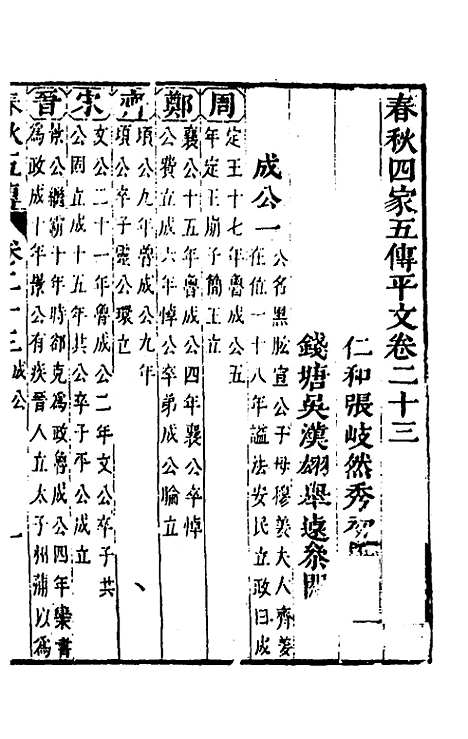 春秋四家五傳平文卷二十三
仁和張岐然秀初
錢塘吳漢翊舉遠參閱
成公一
公名黑肱宣公子母穆姜夫人齊姜
在位一十八年謚法安民立政曰成
周
定王十七年魯成公五
年定王崩子簡王立
鄭
襄公十五年魯成公四年襄公卒悼
公費立成六年悼公卒弟成公睔立
齊
頃公九年魯成公九年
頃公卒子靈公環立
宋
文公二十一年魯成公二年文公卒子共
公固立成十五年共公卒子平公成立
晉
景公繼霸十年時郤克爲政魯成公四年欒書
爲政成十年景公有疾晉人立太子州蒲以爲
春秋五傳 卷二十三 成公 一